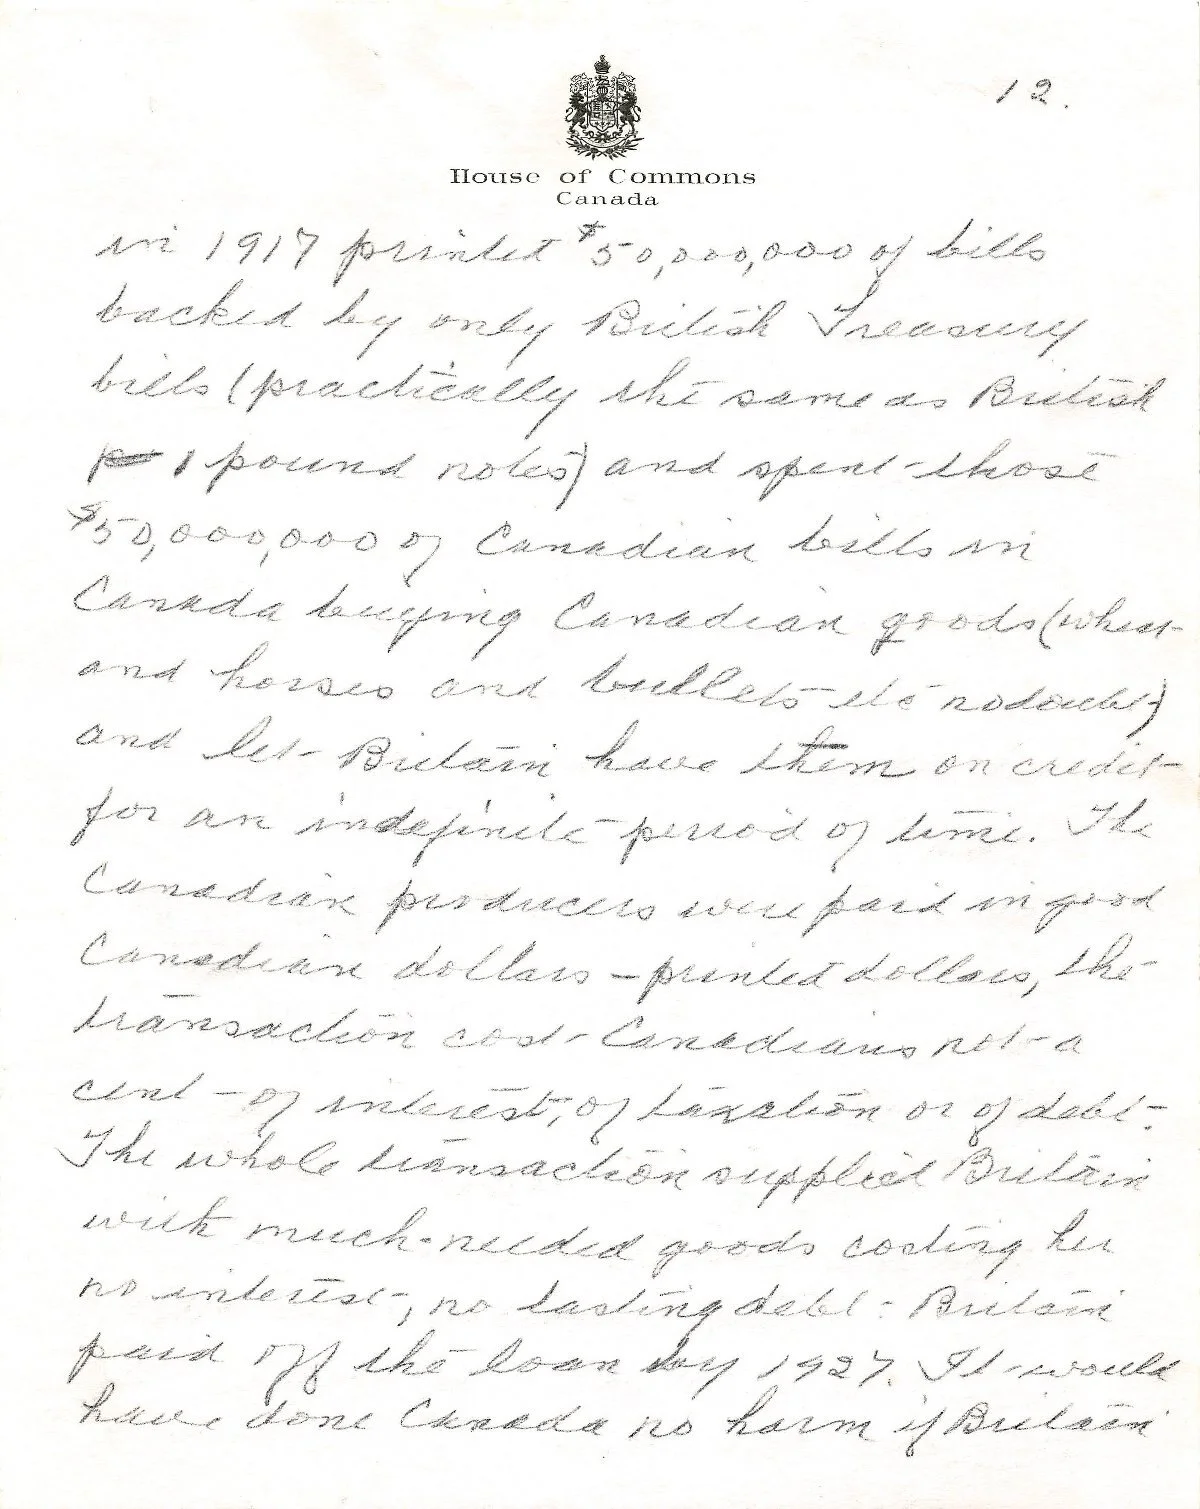 12.
House of Commons
Canada
in 1917 printed $50,000,000 of bills
backed by only British Treasury
bills (practically the same as British
1 pound notes) and spent those
$50,000,000 of Canadian bills in
Canada buying Canadian goods (wheat
and horses and bullets etc no doubt)
and let Britain have them on credit
for an indefinite period of time. The
Canadian producers were paid in good
Canadian dollars – printed dollars, the
transaction cost Canadians not a
cent – of interest, of taxation or of debt.
The whole transaction supplied Britain
with much-needed goods costing her
no interest, no lasting debt. Britain
paid off the loan by 1927. It would
have done Canada no harm if Britain